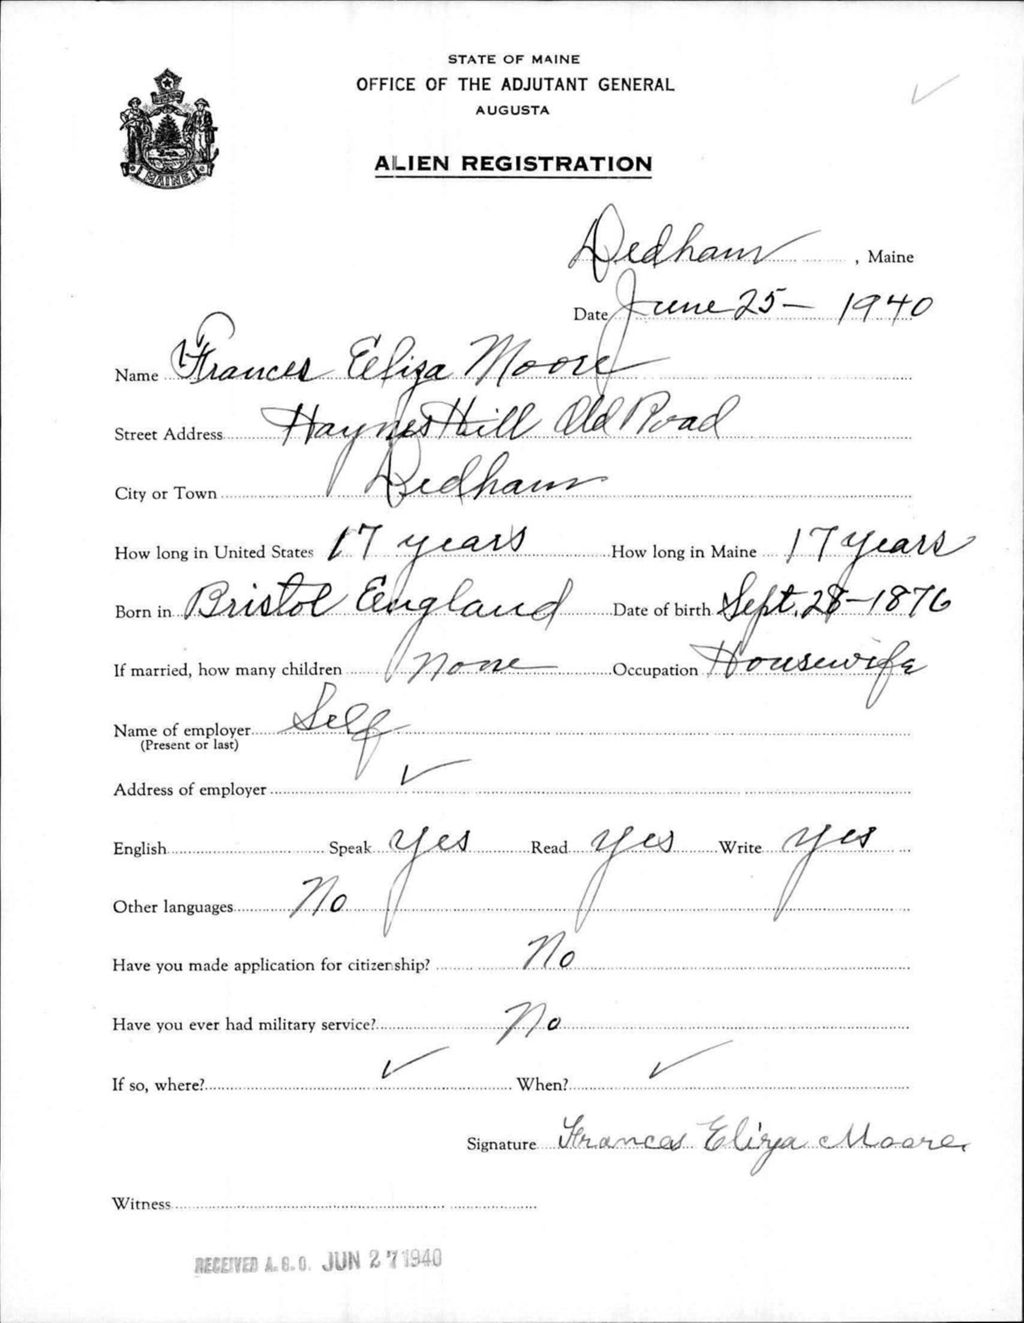 STATE OF MAINE
OFFICE OF THE ADJUTANT GENERAL
AUGUSTA
ALIEN REGISTRATION
MAINE
Dedham, Maine
Date June 25- 1940
Name Frances Eliza Moore
Street Address Haynes Hill Old Road
City or Town Dedham
How long in United States 17 years How long in Maine 17 years
Born in Bristol England Date of birth Sept. 28-1876
If married, how many children none Occupation Housewife
Name of employer Self
(Present or last)
Address of employer ✓
English Speak yes Read yes Write yes
Other languages No
Have you made application for citizenship? No
Have you ever had military service? No
If so, where? ✓ When? ✓
Signature Frances Eliza Moore
Witness
RECEIVED A.G.O. JUN 27 1940